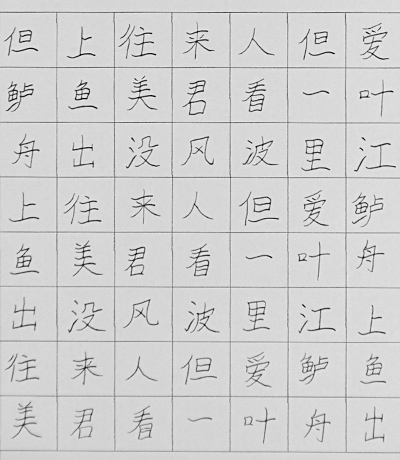 但上往来人但爱
鲈鱼美君看一叶
舟出没风波里江
上往来人但爱鲈
鱼美君看一叶舟
出没风波里江上
往来人但爱鲈鱼
美君看一叶舟出